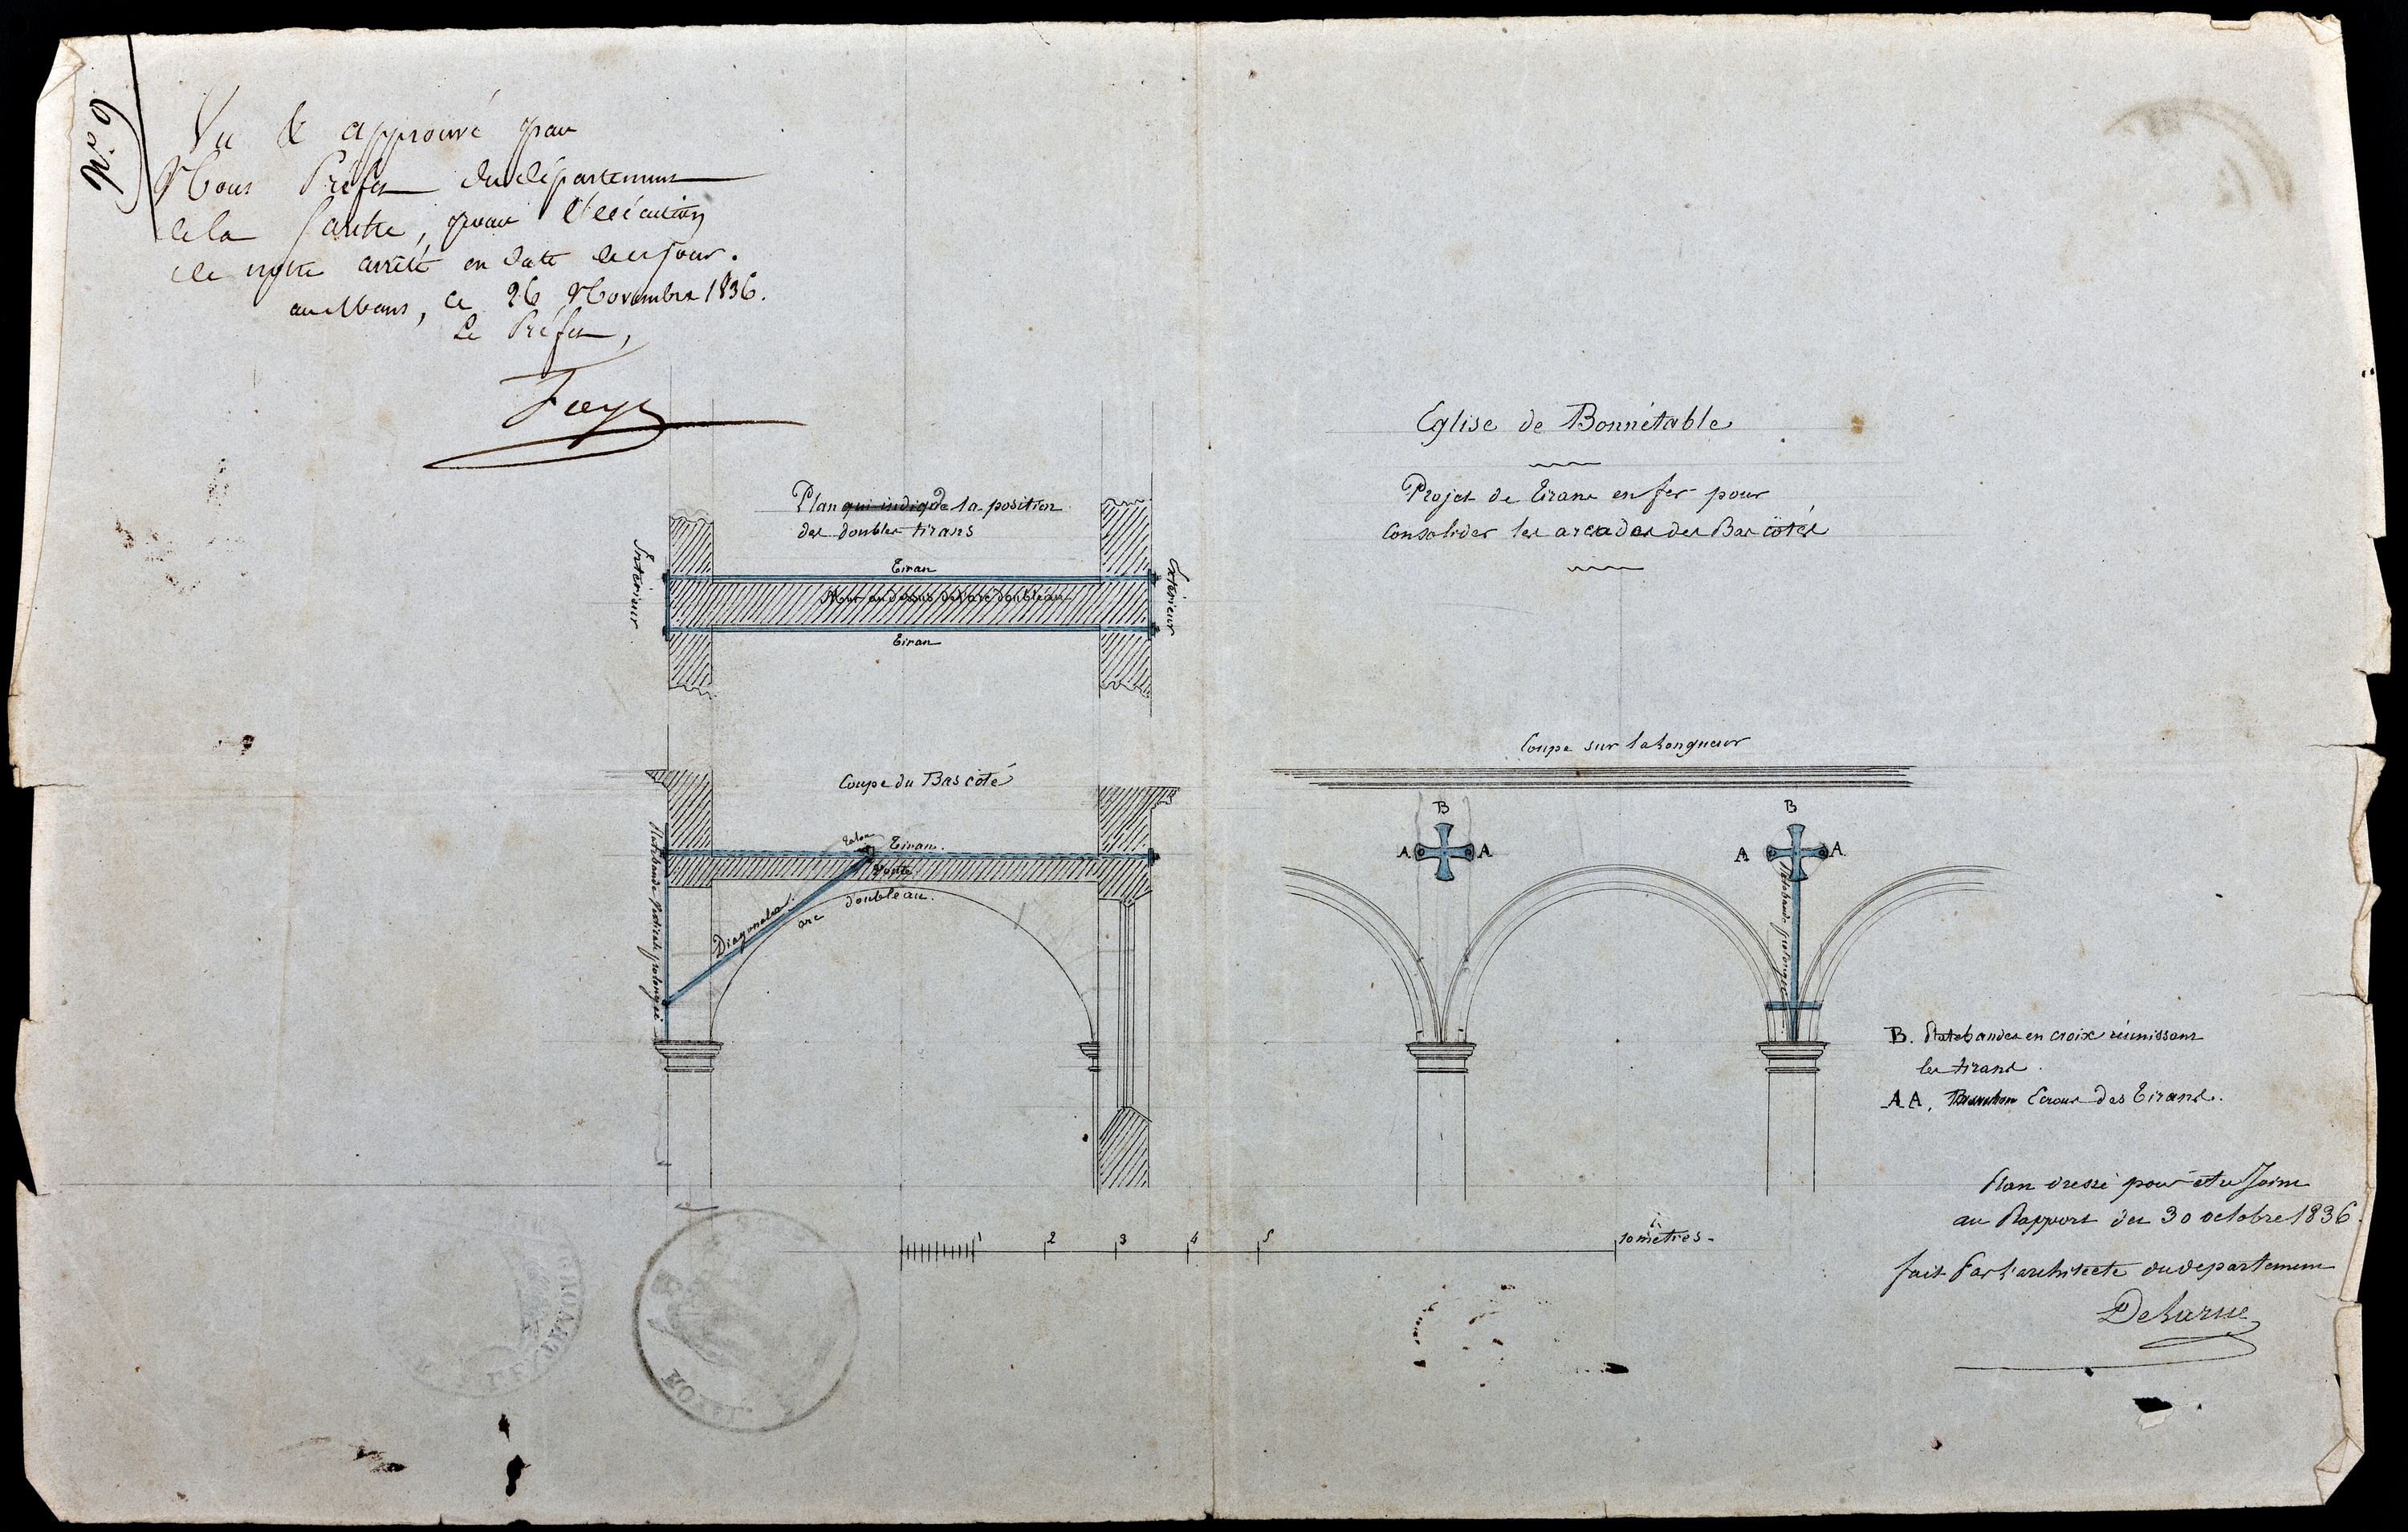 N.° 9
Vu & approuvé par
Nous Préfet du département
de la Sarthe, pour l'exécution
de notre arrêté en date de ce jour.
au Mans, ce 26 Novembre 1836.
Le Préfet,
Eglise de Bonnétable
Projet de Tirans en fer pour
Consolider les arcades des Bas côtés
Plan qui indique de la position
des doubles tirans
Intérieur
Extérieur
Tiran
Mur au dessus de l'arc doubleau
Tiran
Coupe du Bas côté
Talon
Tiran.
Voute
Platebande verticale prolongée
Diagonales.
arc doubleau.
Coupe sur la Longueur
B
B
A
A
A
A.
Platebande prolongée
B. Platebandes en croix réunissant
les tirans.
AA, Ecrous des Tirans.
1 2 3 4 5 10 mètres.
Plan dressé pour être Joint
au Rapport du 30 octobre 1836.
fait Par l'architecte du département
Delarue
ROYAL